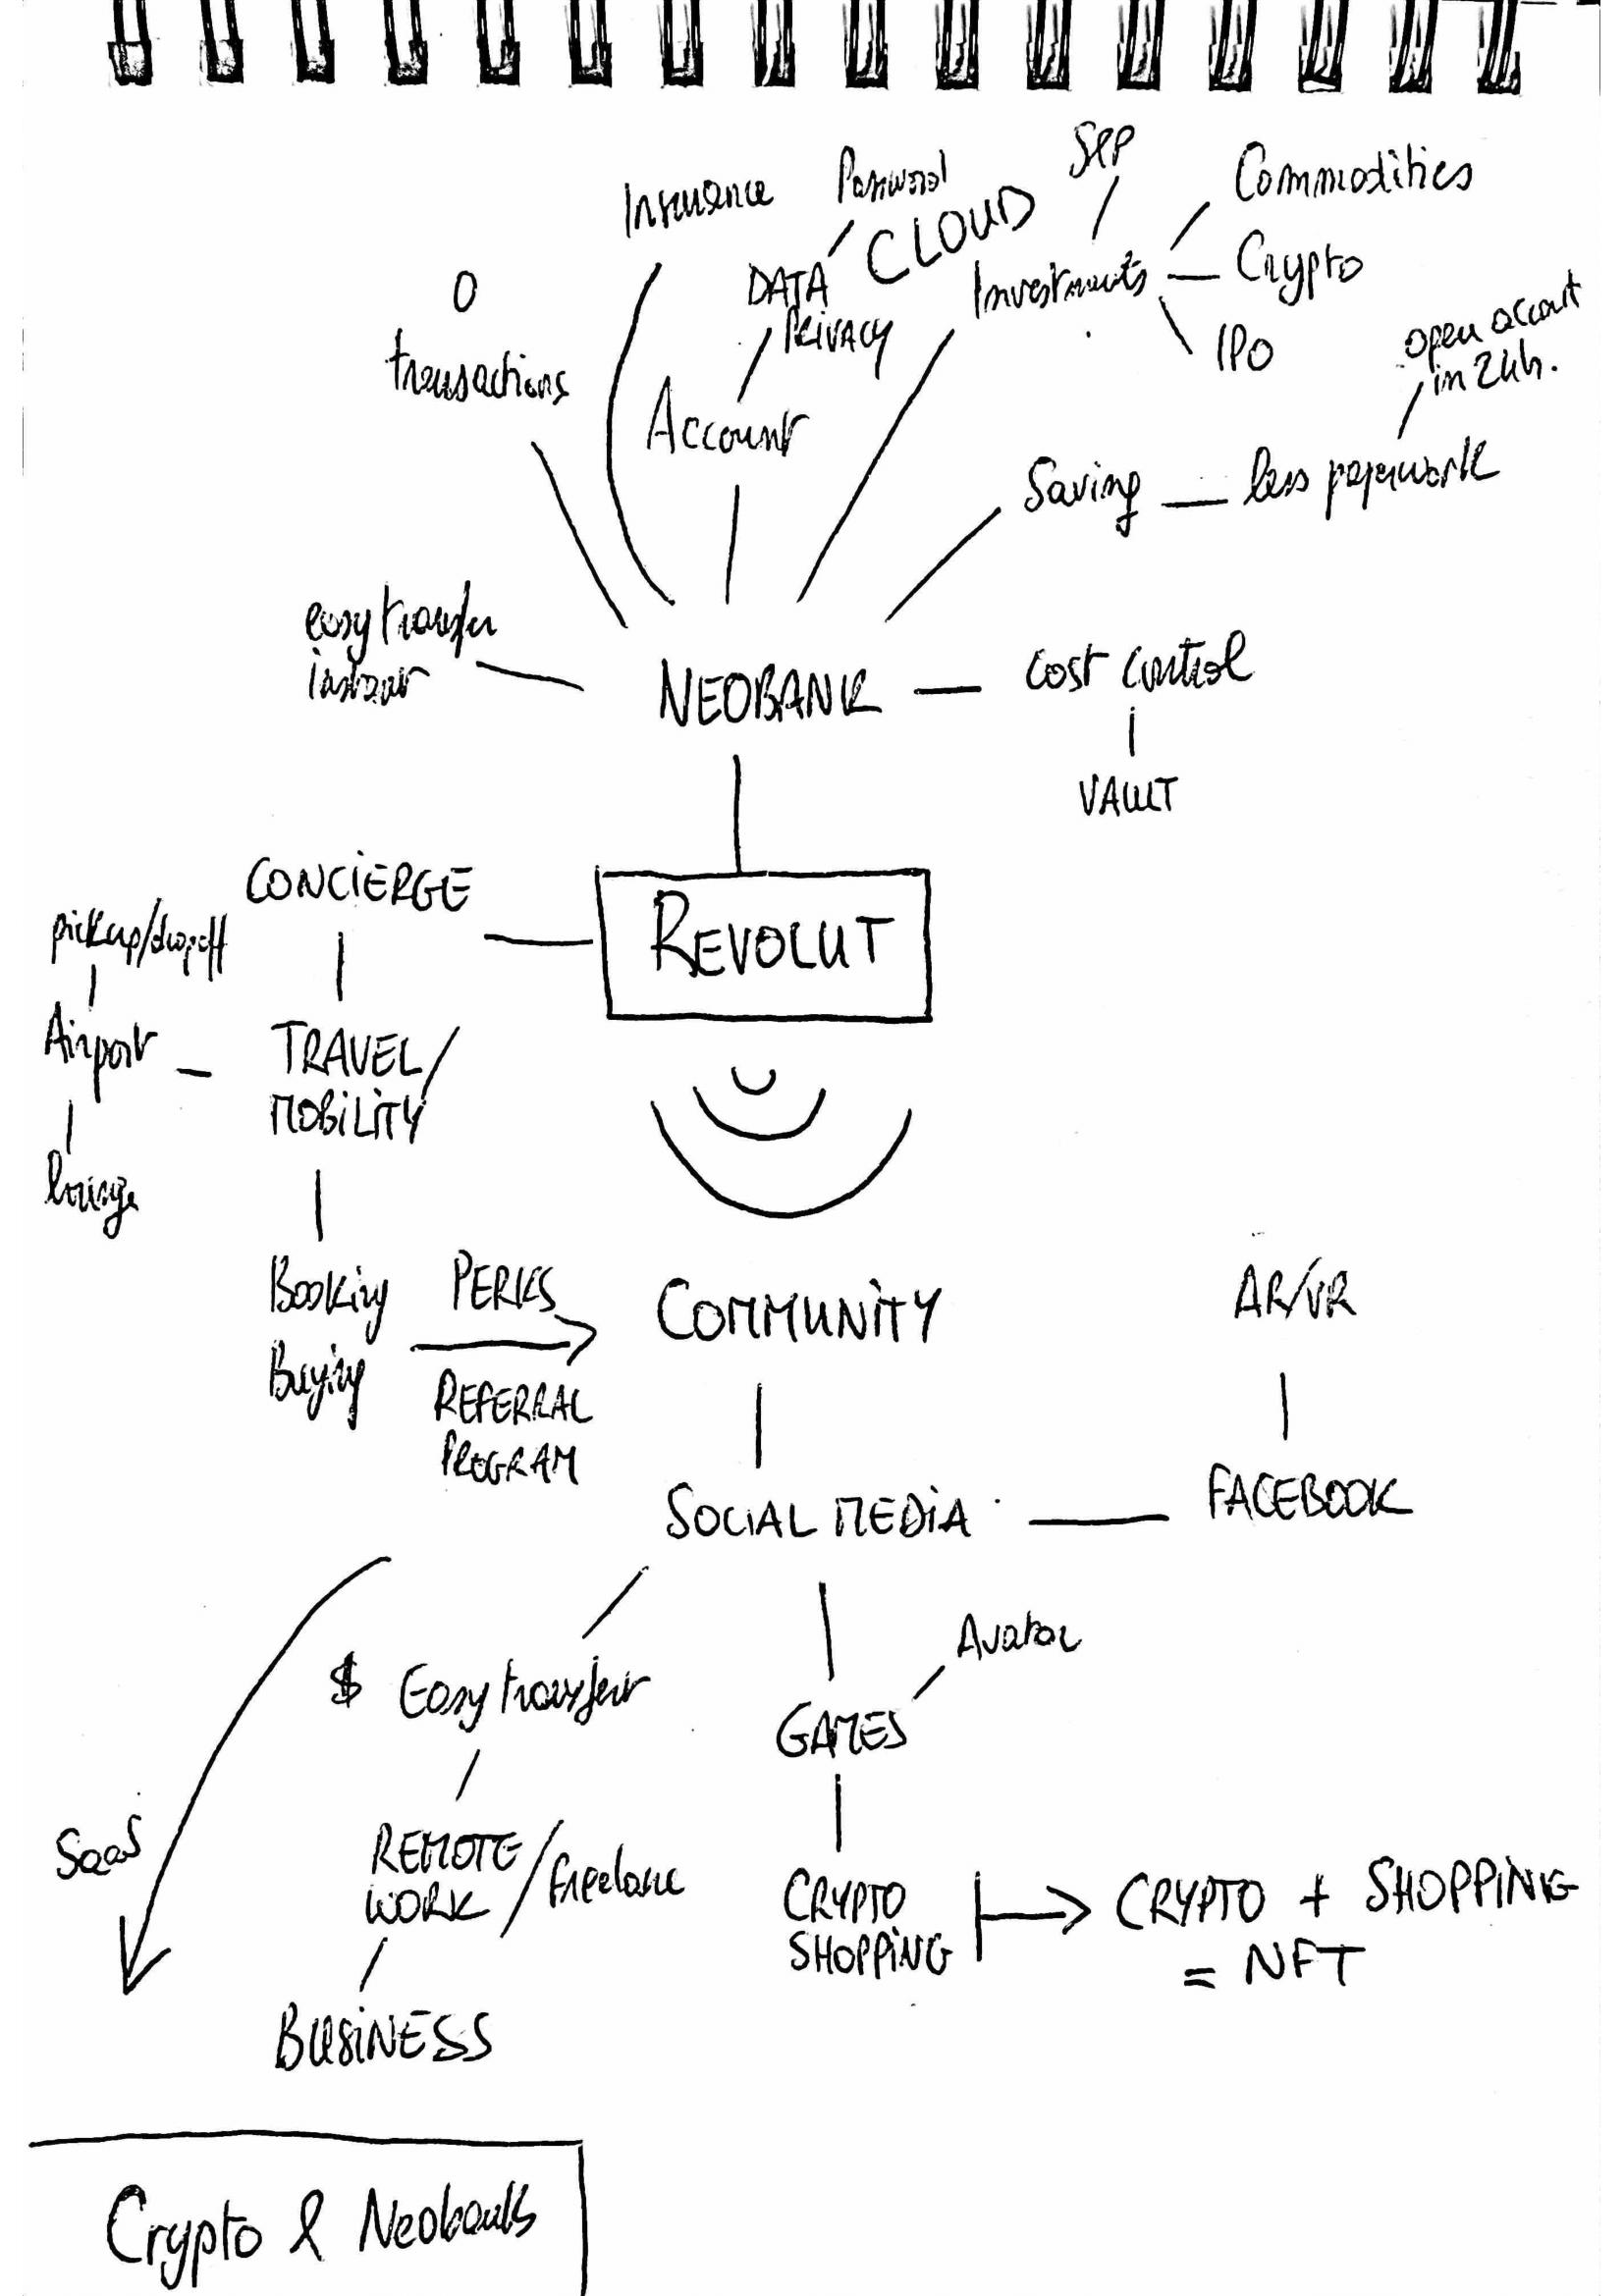 SPP
Insurance
Password
CLOUD
Commodities
DATA
PRIVACY
Investments
Crypto
0
transactions
IPO
open account
in 24h.
Account
Saving
less paperwork
easy transfer
NEOBANK
cost control
VAULT
CONCIERGE
REVOLUT
pickup/dropoff
Airport
TRAVEL/
MOBILITY
lounge
Booking
Buying
PERKS
REFERRAL
PROGRAM
COMMUNITY
AR/VR
SOCIAL MEDIA
FACEBOOK
$ Easy transfer
Avatar
GAMES
SaaS
REMOTE
WORK
/freelance
CRYPTO
SHOPPING
CRYPTO + SHOPPING
= NFT
BUSINESS
Crypto & Neobanks